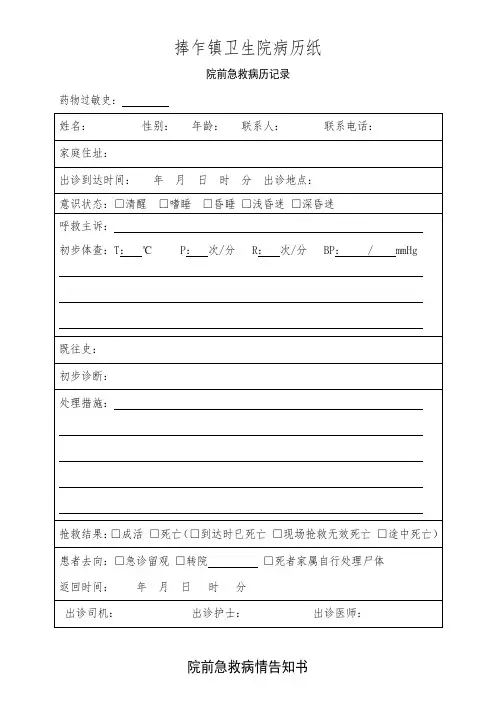 捧乍镇卫生院病历纸
院前急救病历记录
药物过敏史：
姓名： 性别： 年龄： 联系人： 联系电话：
家庭住址：
出诊到达时间： 年 月 日 时 分 出诊地点：
意识状态：□清醒 □嗜睡 □昏睡 □浅昏迷 □深昏迷
呼救主诉：
初步体查：T： ℃ P： 次/分 R： 次/分 BP： / mmHg
既往史：
初步诊断：
处理措施：
抢救结果：□成活 □死亡（□到达时已死亡 □现场抢救无效死亡 □途中死亡）
患者去向：□急诊留观 □转院 □死者家属自行处理尸体
返回时间： 年 月 日 时 分
出诊司机： 出诊护士： 出诊医师：
院前急救病情告知书